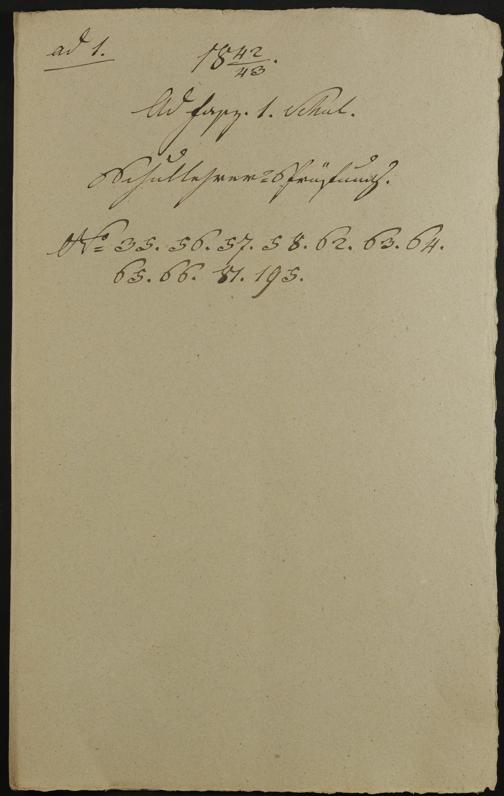 ad 1.
18 42/43.
Ad fasz. 1. Schul.
Schullehrer=Prüfung.
No 35. 56. 57. 58. 62. 63. 64.
65. 66. 81. 195.